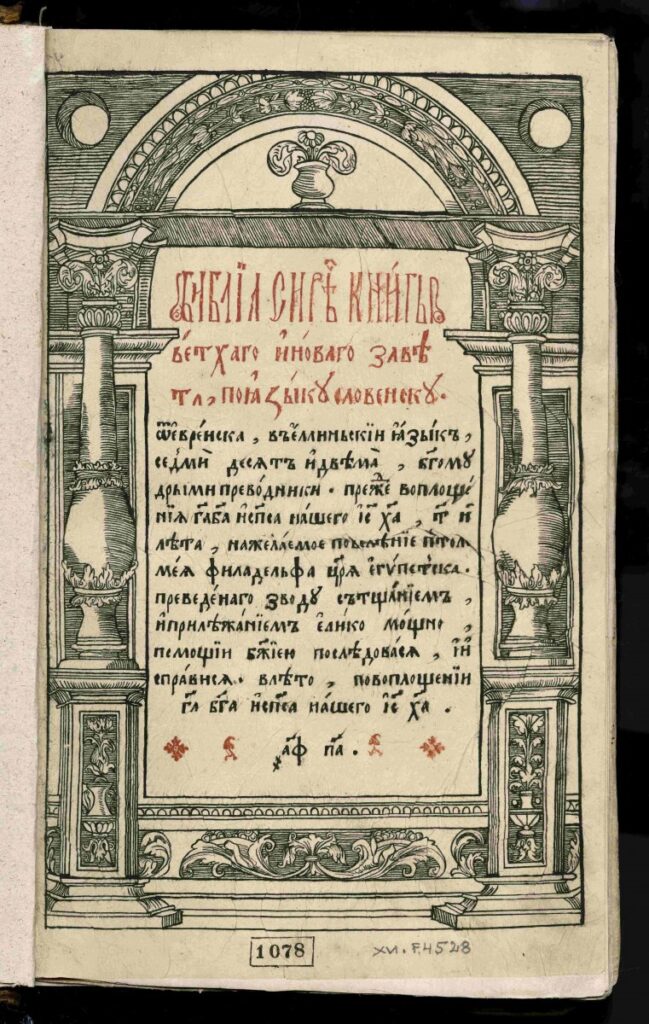 Библїа сирѣ⁠ч книгы
ветхаго и҆ новаго завѣ
та, по ꙗ҆зыку словенску.
ѿ еврейска, въ еллиньскїи ꙗ҆зыкъ,
седмїй десѧтъ и҆ двѣма̀, б҃гому
дрыми преводники. преже воплоще
нїѧ г҃а б҃а и҆ сп҃са нашего і҆с҃ х҃а,
лѣта, на желаемое повелѣнїе птоло
меѧ филаделфа ц҃рѧ є҆гѵпетска.
преведенаго зводу сътщанїемъ,
и҆ прилѣжанїемъ є҆лико мощно,
помощїю б҃жїею послѣдовасѧ, и҆
справисѧ. в лѣто, по воплощенїи
г҃а б҃га и҆ сп҃са нашего і҆с҃ х҃а.
҂аф па.
1078
XVI. F. 4528